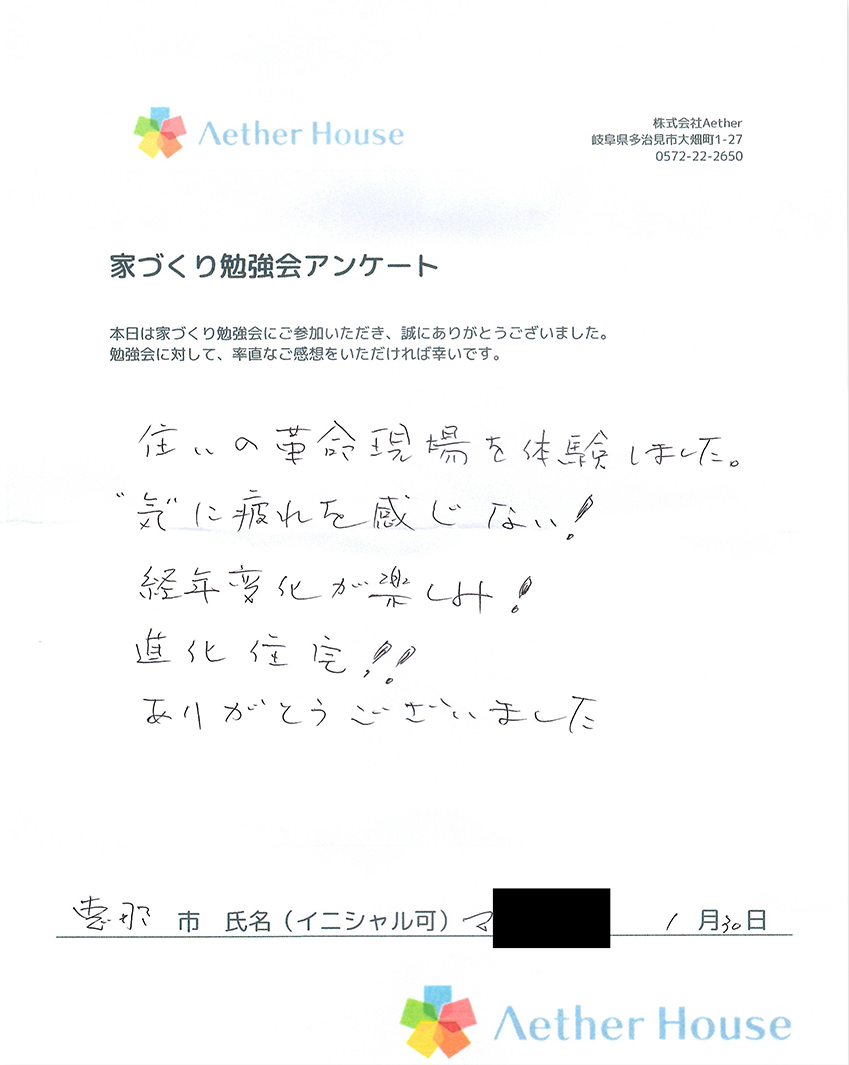 Aether House
株式会社Aether
岐阜県多治見市大畑町1-27
0572-22-2650
家づくり勉強会アンケート
本日は家づくり勉強会にご参加いただき、誠にありがとうございました。
勉強会に対して、率直なご感想をいただければ幸いです。
住いの革命現場を体験しました。
"気"に疲れを感じない!
経年変化が楽しみ!
進化住宅!!
ありがとうございました
恵那 市 氏名(イニシャル可) マ 1 月 30 日
Aether House